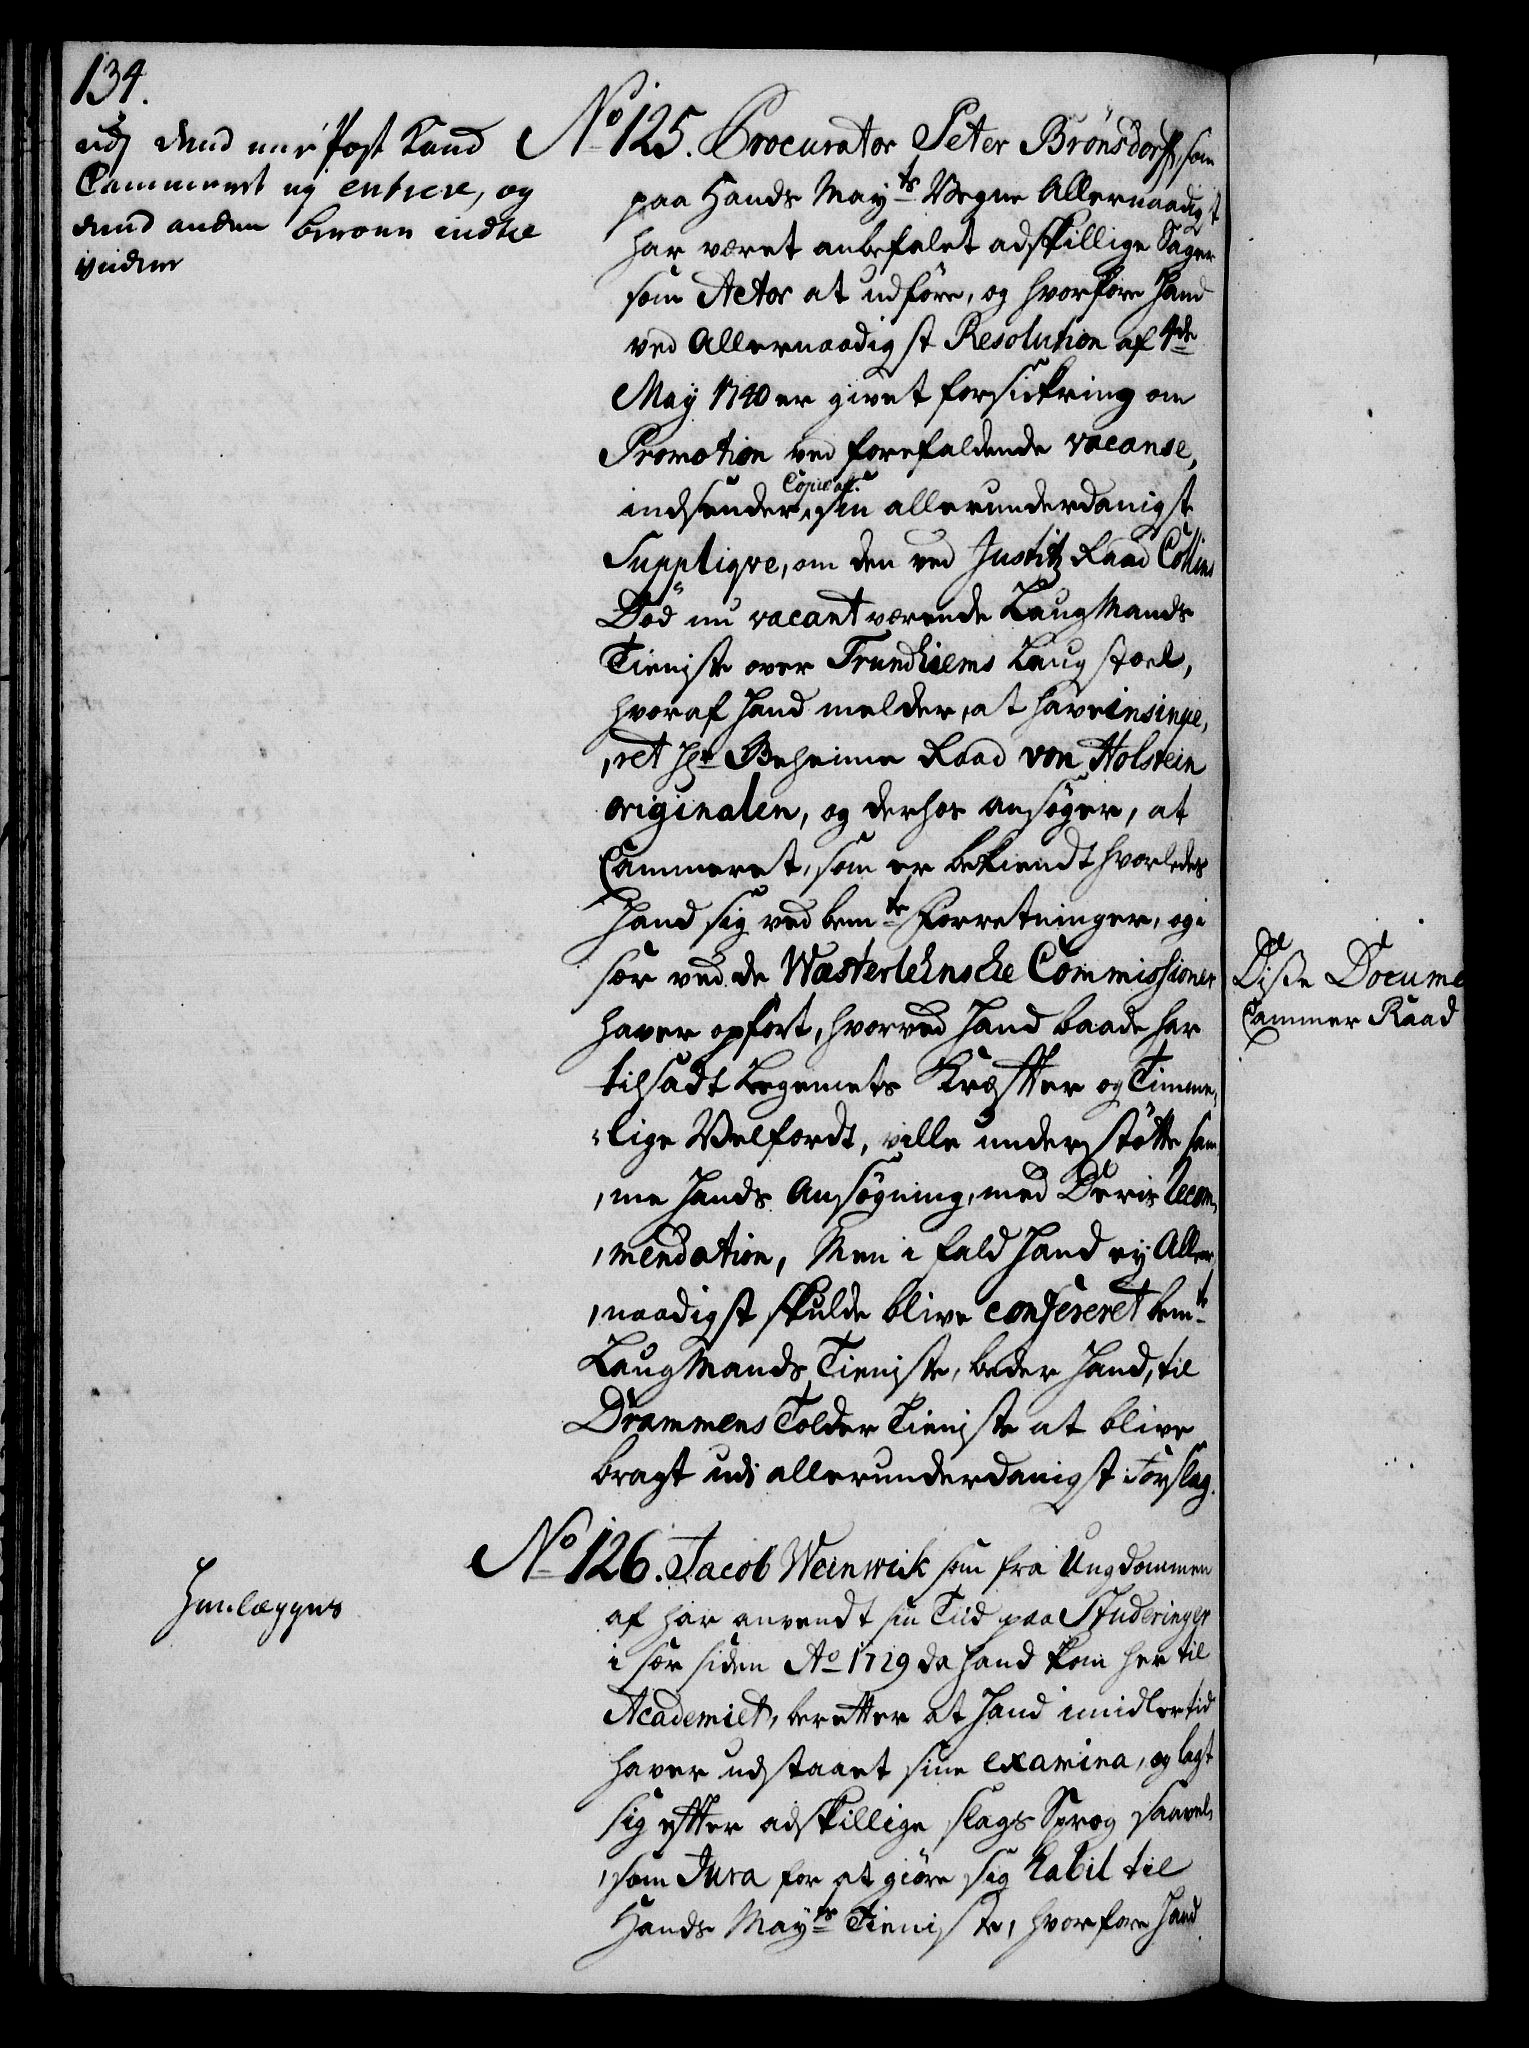 134.
udj dend eene Post kand
Cammeret ej entrere, og
dend anden beroer indtil
viidere
No 125. Procurator Peter Brönsdorff, som
paa Hands Mayts Vegne Allernaadigst
har været anbefalet adskillige Sager
som Actor at udföre, og hvorfore Hand
ved Allernaadigst Resolution af 4de
May 1740 er givet forsickring om
Promotion ved forefaldende vacanse,
indsender Copie af sin allerunderdanigste
Suppliqve, om den ved Justitz Raad Collins
Död nu vacant værende Laug Mands
Tieniste over Trundhiems Laug stoel,
hvoraf Hand melder, at have insinue,
,ret Hr Geheime Raad von Holstein
originalen, og derhos ansöger, at
Cammeret, som er bekiendt hvorledes
Hand sig ved bemte Forretninger, og i
sær ved de Wasterleinsche Commissioner
haver opfört, hvorved Hand baade har
tilsadt Legemets Kræffter og Timme,
,lige Velfærdt, ville understötte sam
,me Hands Ansögning, med Deris Recom,
,mendation, Men i fald Hand ej Aller,
,naadigst skulde blive confereret bemte
Laug Mands Tieniste, beder Hand, til
Drammens Tolder Tieniste at blive
bragt udi allerunderdanigst Forslag.
No 126. Jacob Weinwick som fra Ungdommen
Henlægges
af har anvendt sin Tiid paa Studeringer
i sær siden Ao 1729 da Hand kom her til
Academiet, beretter at Hand imidlertid
haver udstaaet sine examina, og lagt
sig effter adskillige slags Sprog saavel,
,som Jura for at giöre sig habil til
Hands Mayts Tieniste, hvorfore Hand
Disse Docume
Cammer Raad